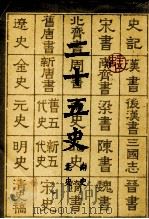 二十五史
史記 漢書 後漢書 三國志 晉書
宋書 南齊書 梁書 陳書 魏書
北齊書 周書
舊唐書 新唐書 舊五代史 新五代史 宋史
遼史 金史 元史 明史 清史稿